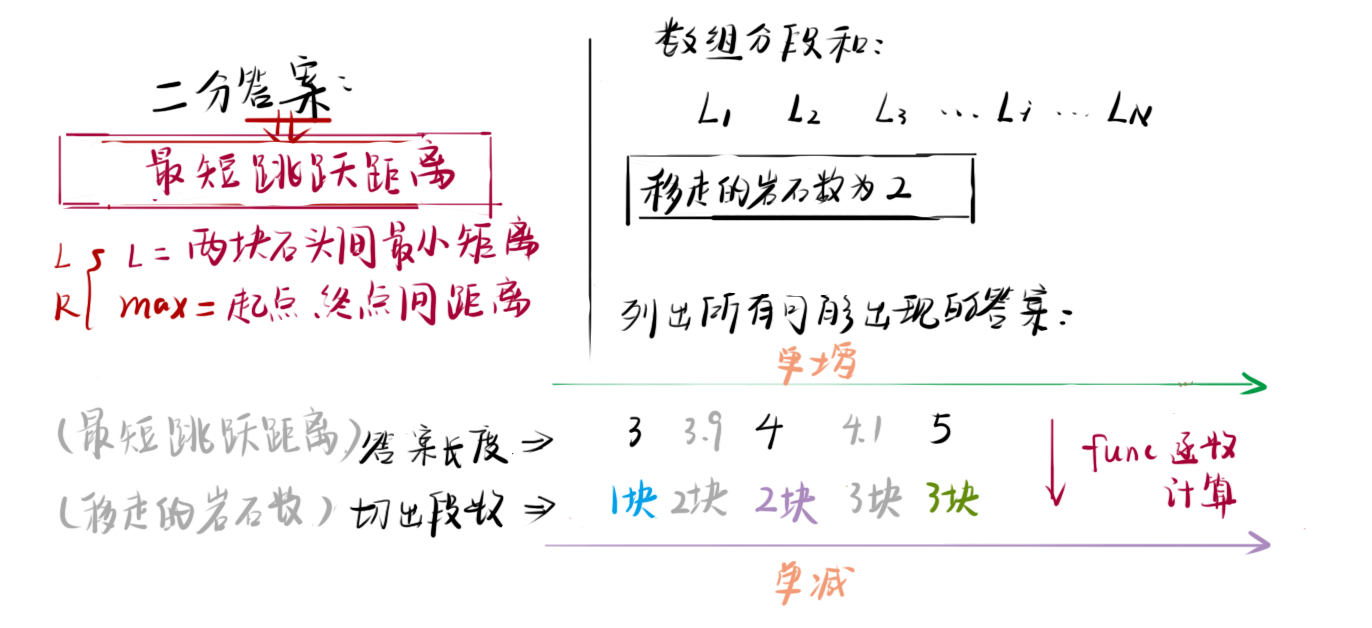 二分答案:
最短跳跃距离
L L = 两块石头间最小距离
R max = 起点.终点间距离
数组分段和:
L1 L2 L3 ... Li ... LN
移走的岩石数为2
列出所有可能出现的答案:
单增
(最短跳跃距离)答案长度 ⇒ 3 3.9 4 4.1 5
(移走的岩石数)切出段数 ⇒ 1块 2块 2块 3块 3块
func函数
计算
单减